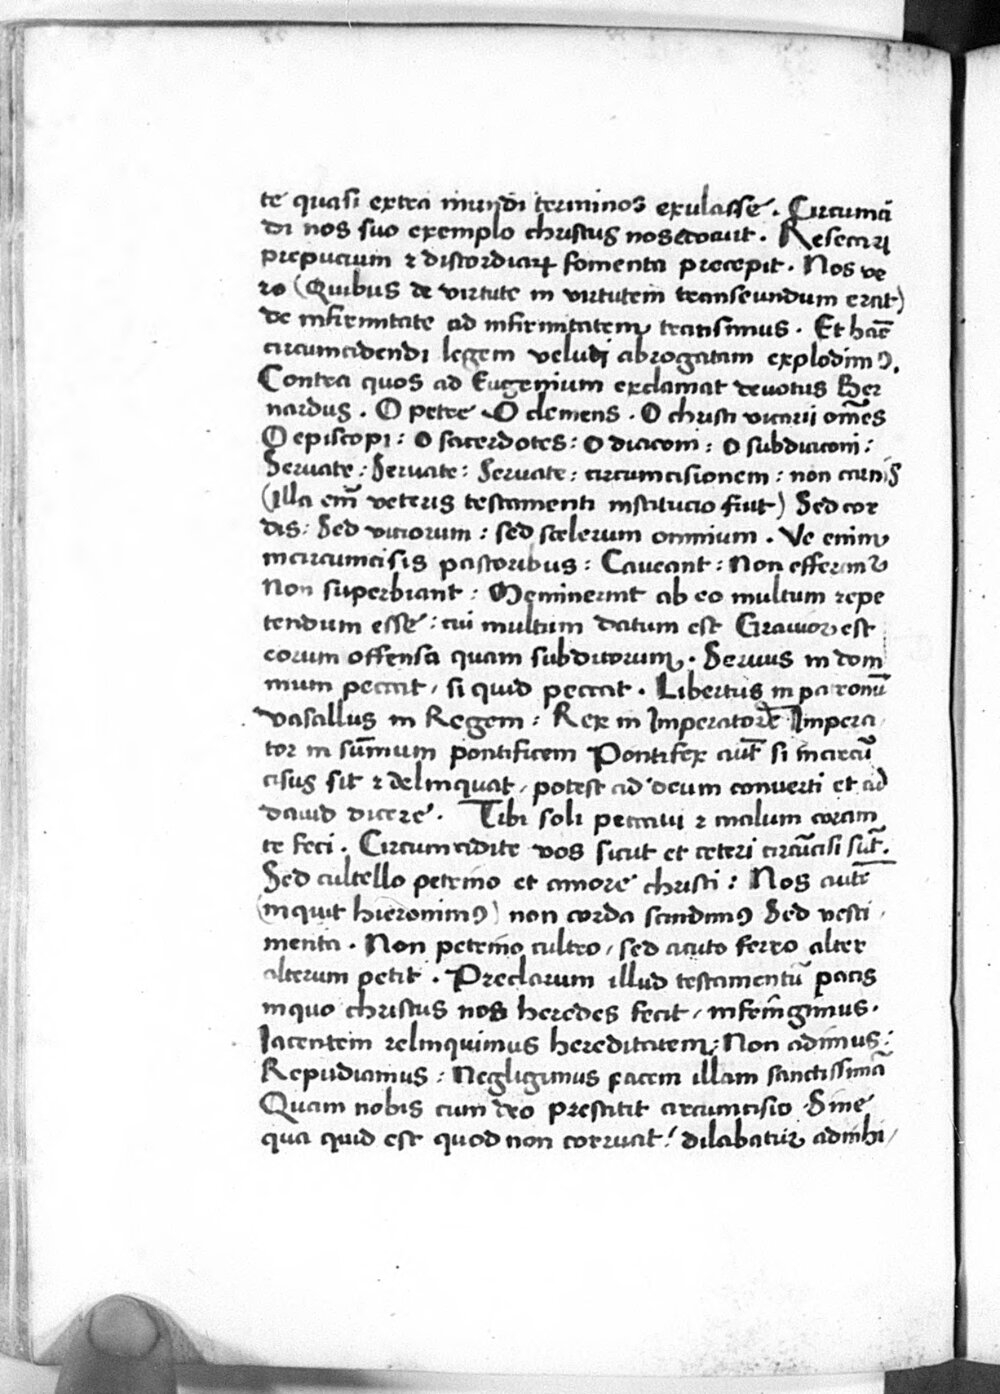 te quasi extra mundi terminos exulasse. Circumci
di nos suo exemplo christus nos docuit. Resecari
prepucium ⁊ discordiarꝝ fomenta precepit. Nos ve
ro (Quibus de virtute in virtutem transeundum erat)
de infirmitate ad infirmitatem transimus. Et hāc
circumcidendi legem veludi abrogatam explodimꝰ.
Contra quos ad Eugenium exclamat devotus Ber
nardus. O petre. O clemens. O christi vicarii om̄es
O episcopi: o sacerdotes: o diaconi: o subdiaconi:
Servate: Servate: Servate: circumcisionem: non carnis
(illa em̄ veteris testamenti institucio fuit) Sed cor
dis: Sed viciorum: sed scelerum omnium. Ve enim
incircumcisis pastoribus: Caveant: Non efferant᷑
Non superbiant: Meminerint ab eo multum repe
tendum esse: cui multum datum est Gravior est
eorum offensa quam subditorum. Servus in dom
inum peccat, si quid peccat. Libertus in patronū
vasallus in Regem: Rex in Imperatorē Impera
tor in sum̄um pontificem Pontifex aut̄ si incircū
cisus sit ⁊ delinquat, potest ad deum converti et ad
david dicere. Tibi soli peccavi ⁊ malum coram
te feci. Circumcidite vos sicut et ceteri circūcisi sūt.
Sed cultello petrino et amore christi: Nos autē
(inquit hieronimꝰ) non corda scindimꝰ Sed vesti,
menta. Non petrino cultro, sed acuto ferro alter
alterum petit. Preclarum illud testamentū pacis
inquo christus nos heredes fecit, infrīngimus.
Iacentem relinquimus hereditatem: Non adimus:
Repudiamus: Negligimus pacem illam sanctissimā
Quam nobis cum deo prestitit circumcisio Sine
qua quid est quod non corruat! dilabatur adnihi,